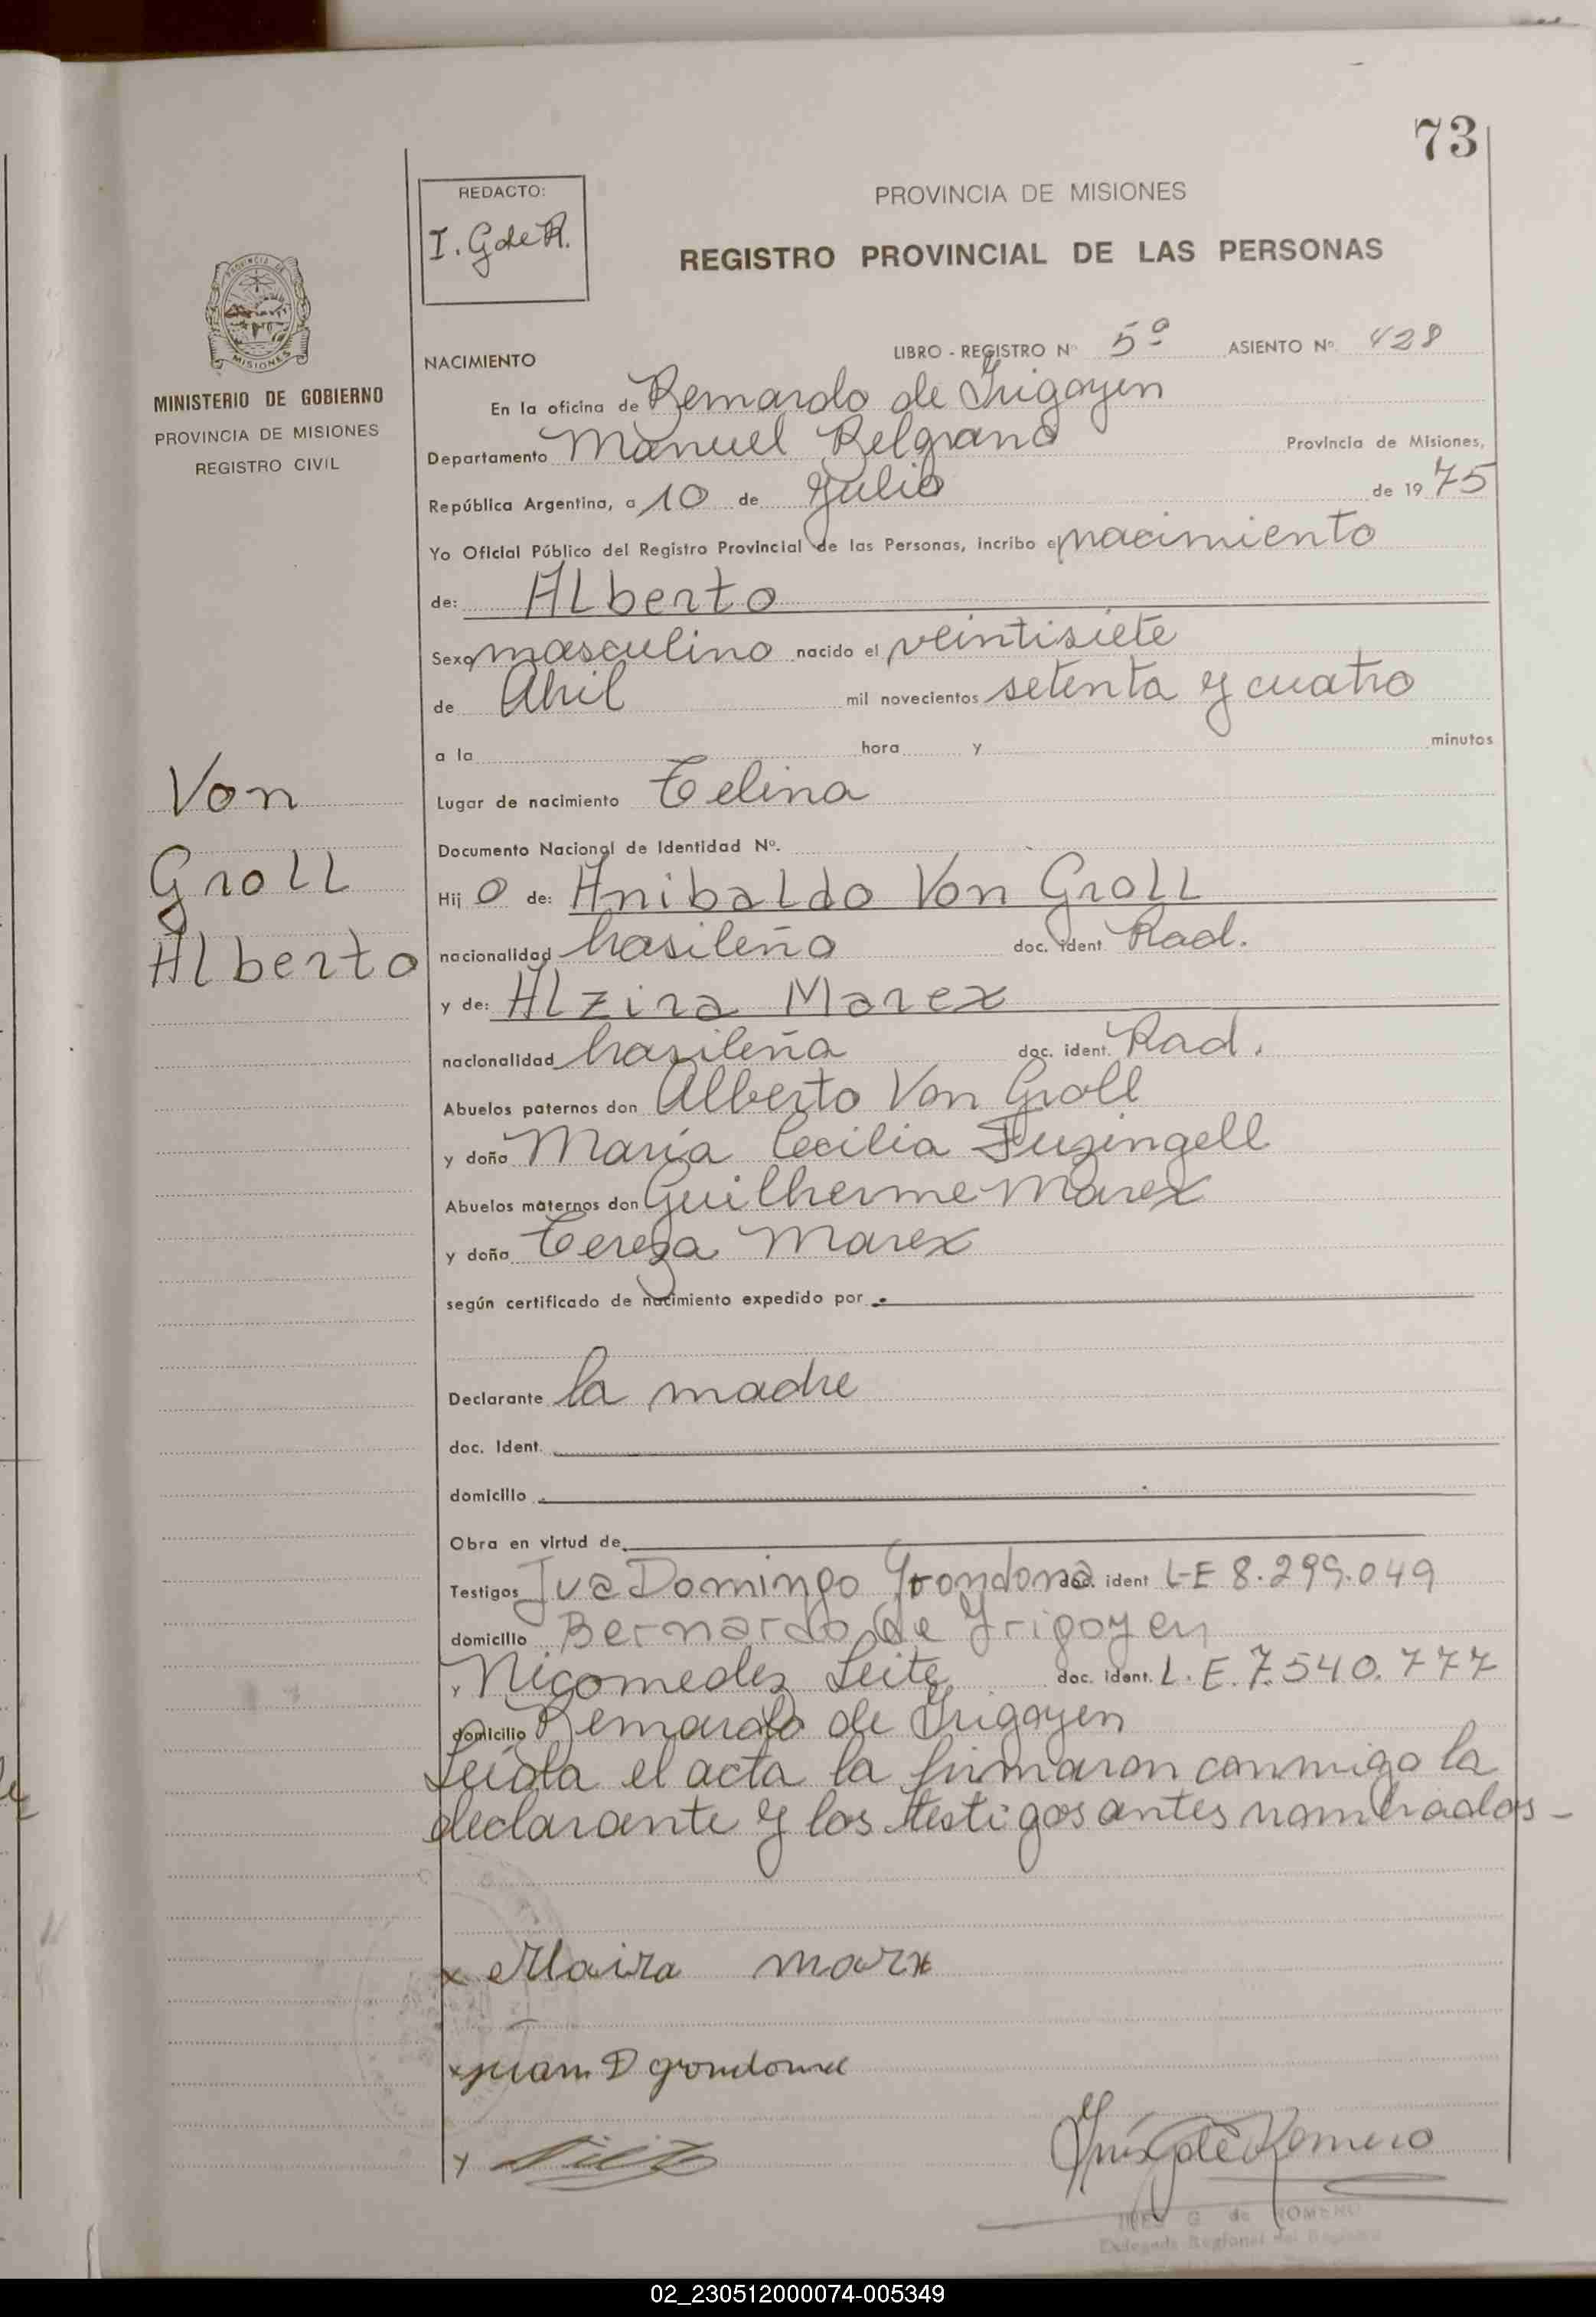 73
REDACTO:
I. G de R.
PROVINCIA DE MISIONES
REGISTRO PROVINCIAL DE LAS PERSONAS
PROVINCIA DE
MISIONES
MINISTERIO DE GOBIERNO
PROVINCIA DE MISIONES
REGISTRO CIVIL
NACIMIENTO
LIBRO - REGISTRO Nº 5º ASIENTO Nº 428
En la oficina de Bernardo de Irigoyen
Departamento Manuel Belgrano Provincia de Misiones,
República Argentina, a 10 de Julio de 1975
Yo Oficial Público del Registro Provincial de las Personas, incribo el nacimiento
de: ALberto
Sexo masculino nacido el veintisiete
de Abril mil novecientos setenta y cuatro
a la hora y minutos
Lugar de nacimiento Celina
Documento Nacional de Identidad Nº.
Von
Groll
Alberto
Hij o de: AnibaLdo Von GroLL
nacionalidad brasileño doc. ident Rad.
y de: ALzira Marex
nacionalidad brasileña doc. ident. Rad.
Abuelos paternos don Alberto Von Groll
y doña María Cecilia Fuzingell
Abuelos maternos don Guilherme Marex
y doña Cereza Marex
según certificado de nacimiento expedido por
Declarante la madre
doc. Ident.
domicilio
Obra en virtud de
Testigos Jua Domingo Grondona doc. ident L-E 8.299.049
domicilio Bernardo de Yrigoyen
y Nicomedez Leite doc. ident. L. E. 7.540.777
domicilio Bernardo de Irigoyen
Leída el acta la firmaron conmigo la
declarante y los testigos antes nombrados -
x marx
x juan D grondona
Inés G de Romero
INES G. de ROMERO
Delegada Regional del Registro
02_230512000074-005349